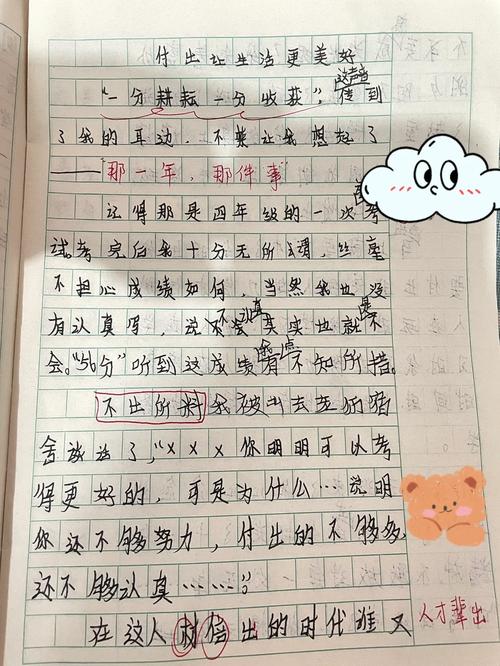 付出让生活更美好
这声音
“一分耕耘一分收获”,传到
了我的耳边,不禁让我想起了
——那一年,那件事
记得那是四年级的一次考
试。考完后我十分无所谓,丝毫
不担心成绩如何,当然我也没
不认真 是
有认真写,说 其实也就不
会。“56分”听到这成绩 有 不知所措。
不出所料我被 去 师宿
舍谈话了,“×××你明明可以考
得更好的,可是为什么…说明
你还不够努力,付出的不够多,
还不够认真……”
在这人 出的时代谁又
人才辈出